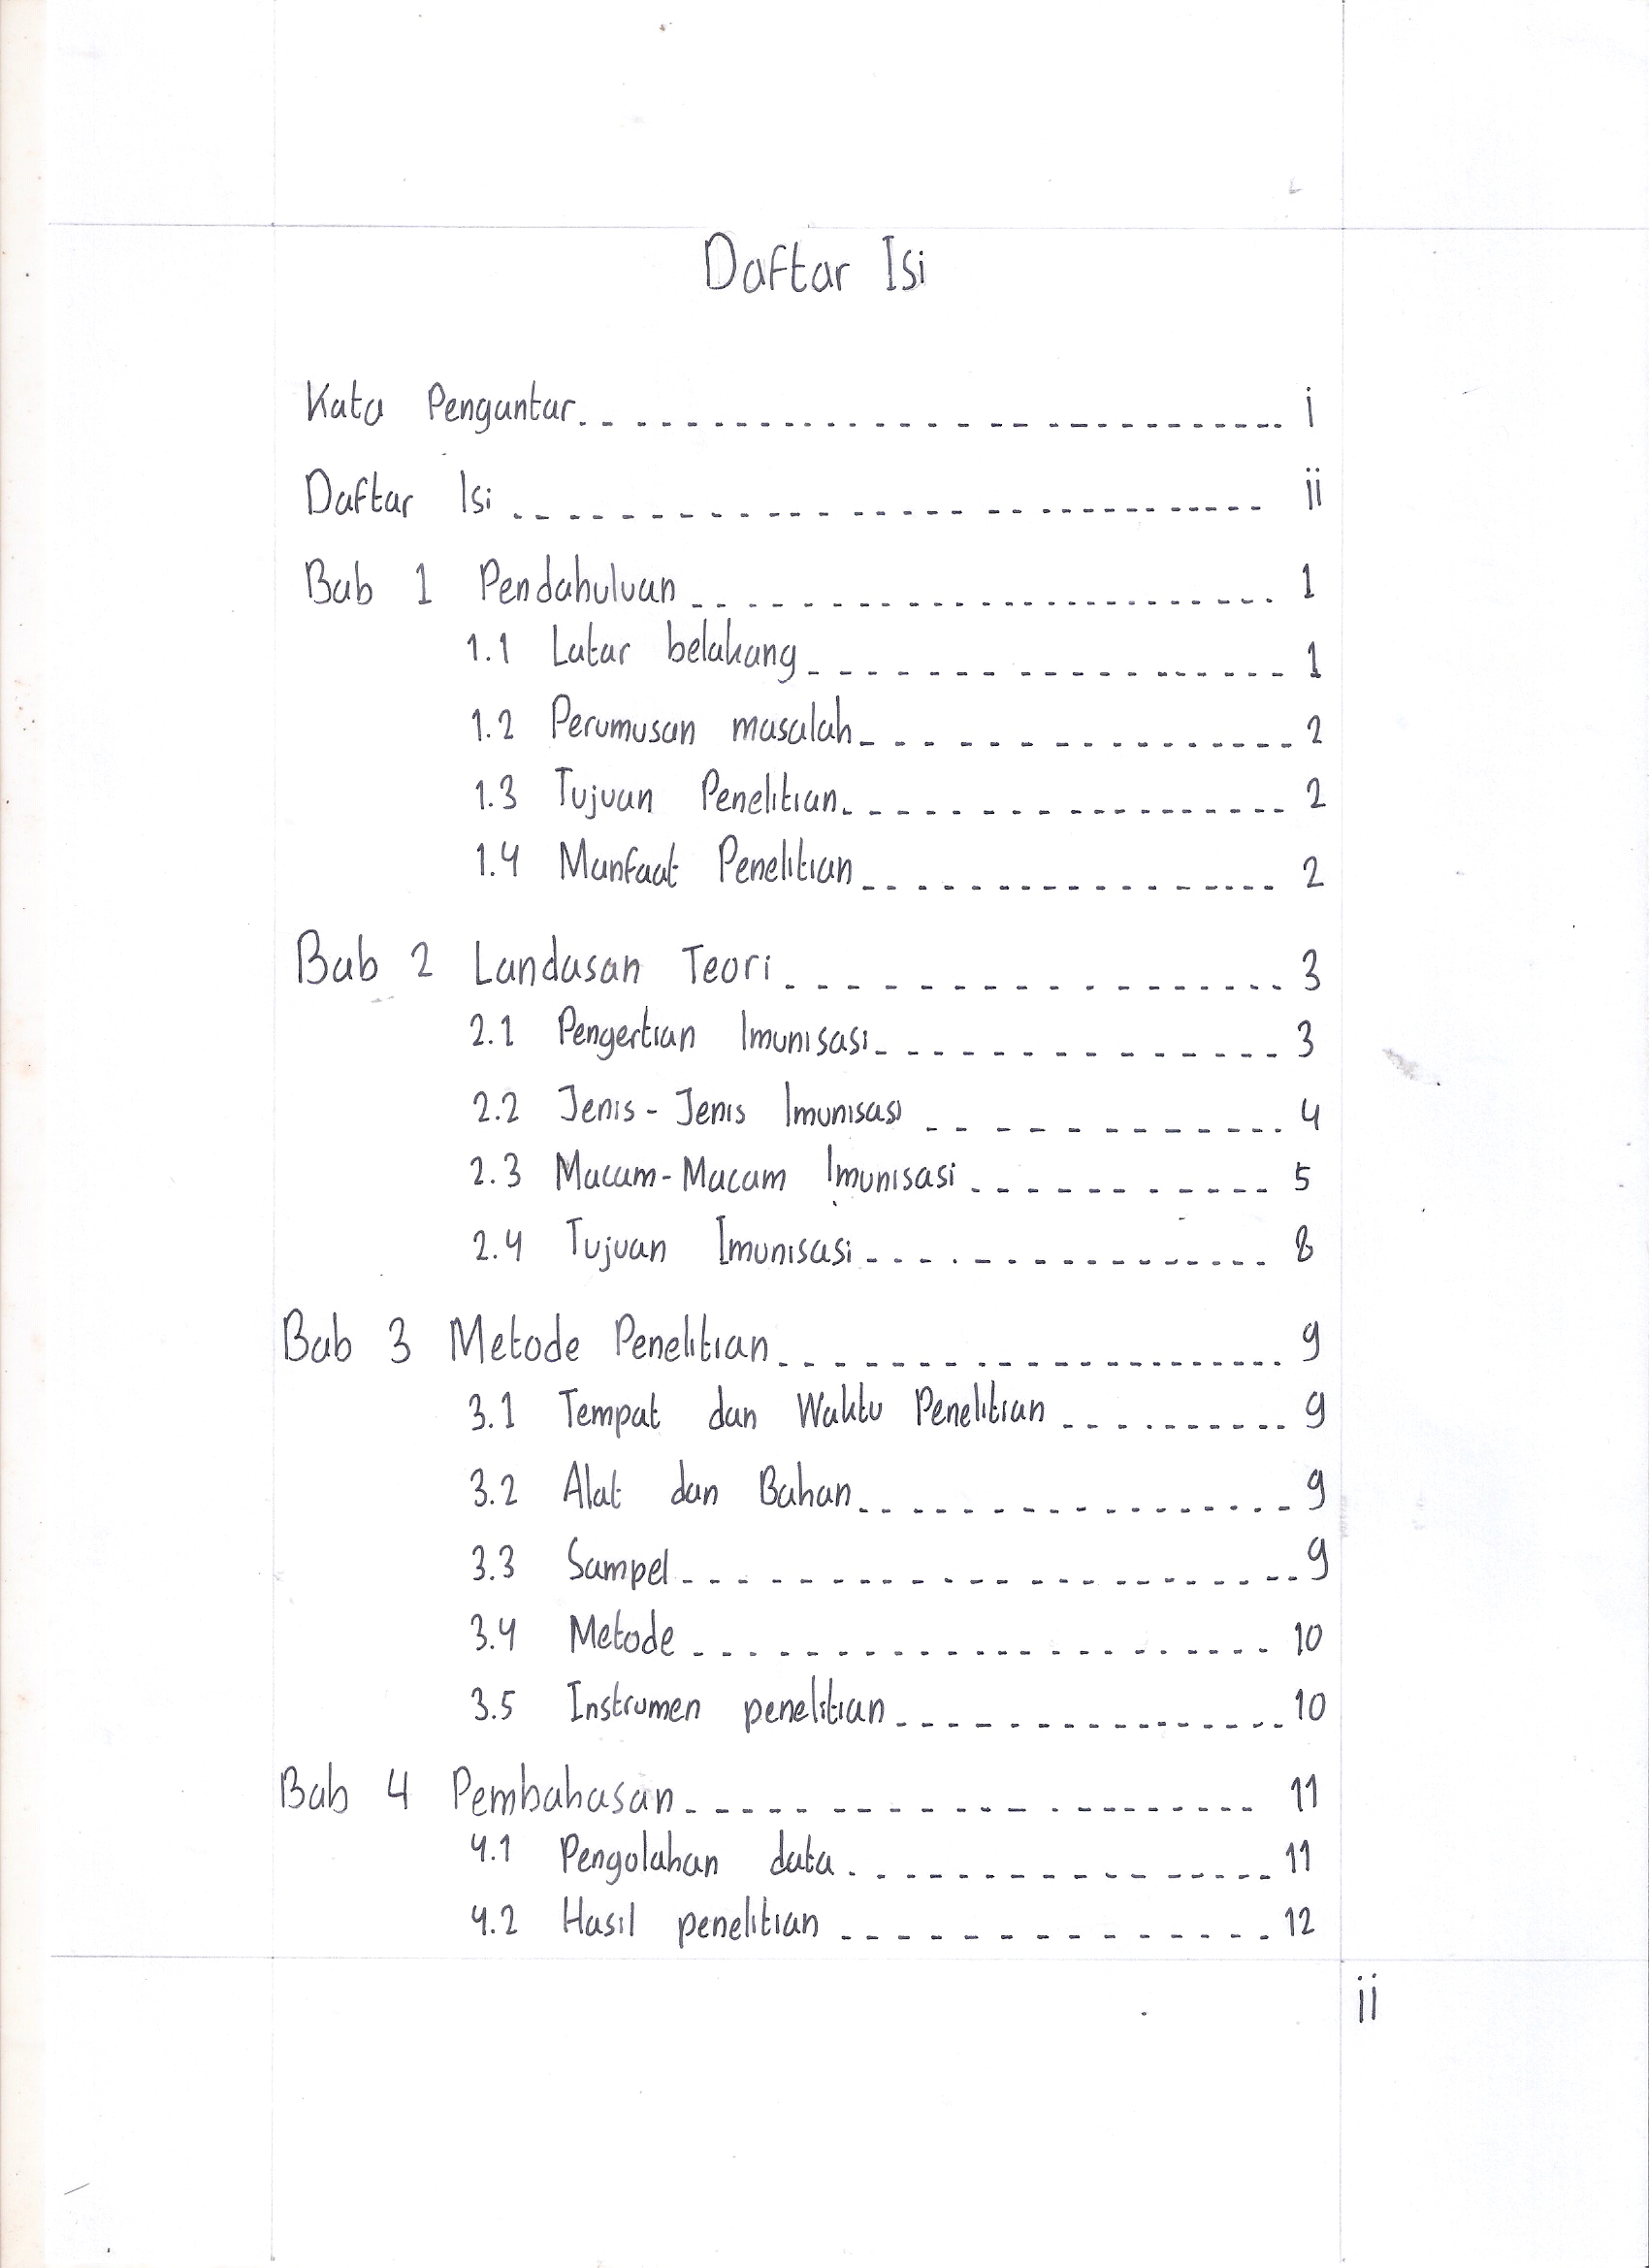 Daftar Isi
Kata Pengantar.................... i
Daftar Isi.................... ii
Bab 1 Pendahuluan.................... 1
1.1 Latar belakang.................... 1
1.2 Perumusan masalah.................... 2
1.3 Tujuan Penelitian.................... 2
1.4 Manfaat Penelitian.................... 2
Bab 2 Landasan Teori.................... 3
2.1 Pengertian Imunisasi.................... 3
2.2 Jenis-Jenis Imunisasi.................... 4
2.3 Macam-Macam Imunisasi.................... 5
2.4 Tujuan Imunisasi.................... 8
Bab 3 Metode Penelitian.................... 9
3.1 Tempat dan Waktu Penelitian.................... 9
3.2 Alat dan Bahan.................... 9
3.3 Sampel.................... 9
3.4 Metode.................... 10
3.5 Instrumen penelitian.................... 10
Bab 4 Pembahasan.................... 11
4.1 Pengolahan data.................... 11
4.2 Hasil penelitian.................... 12
ii